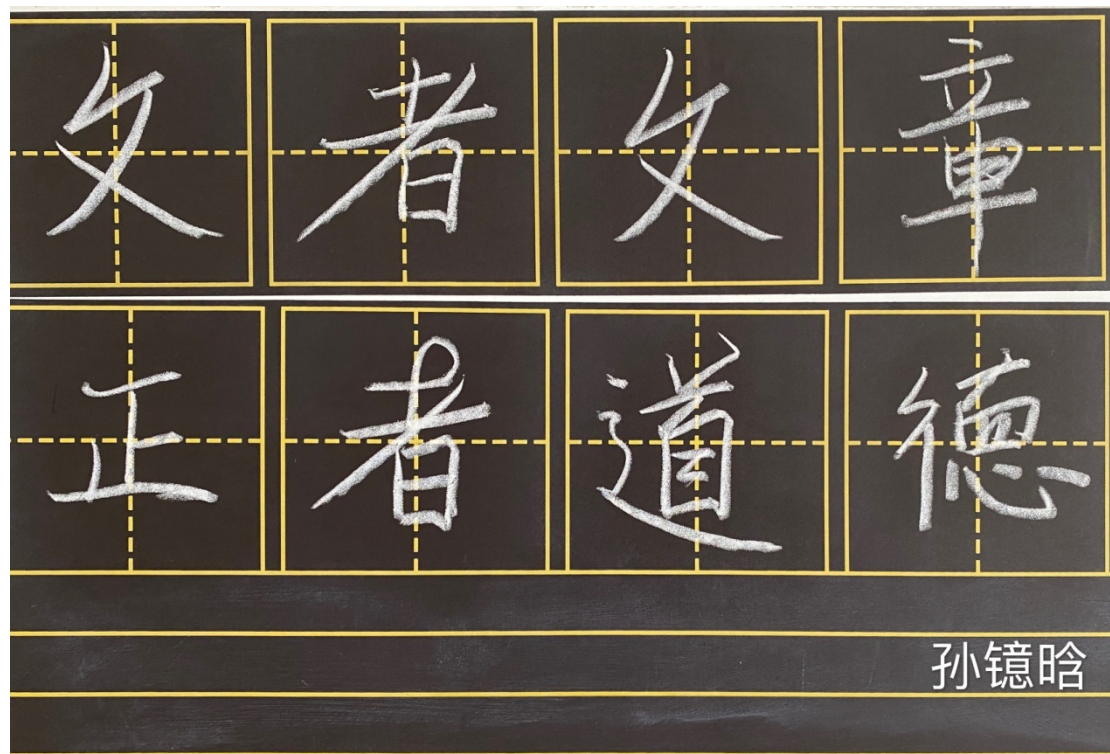 文者文章
正者道德
孙镱晗